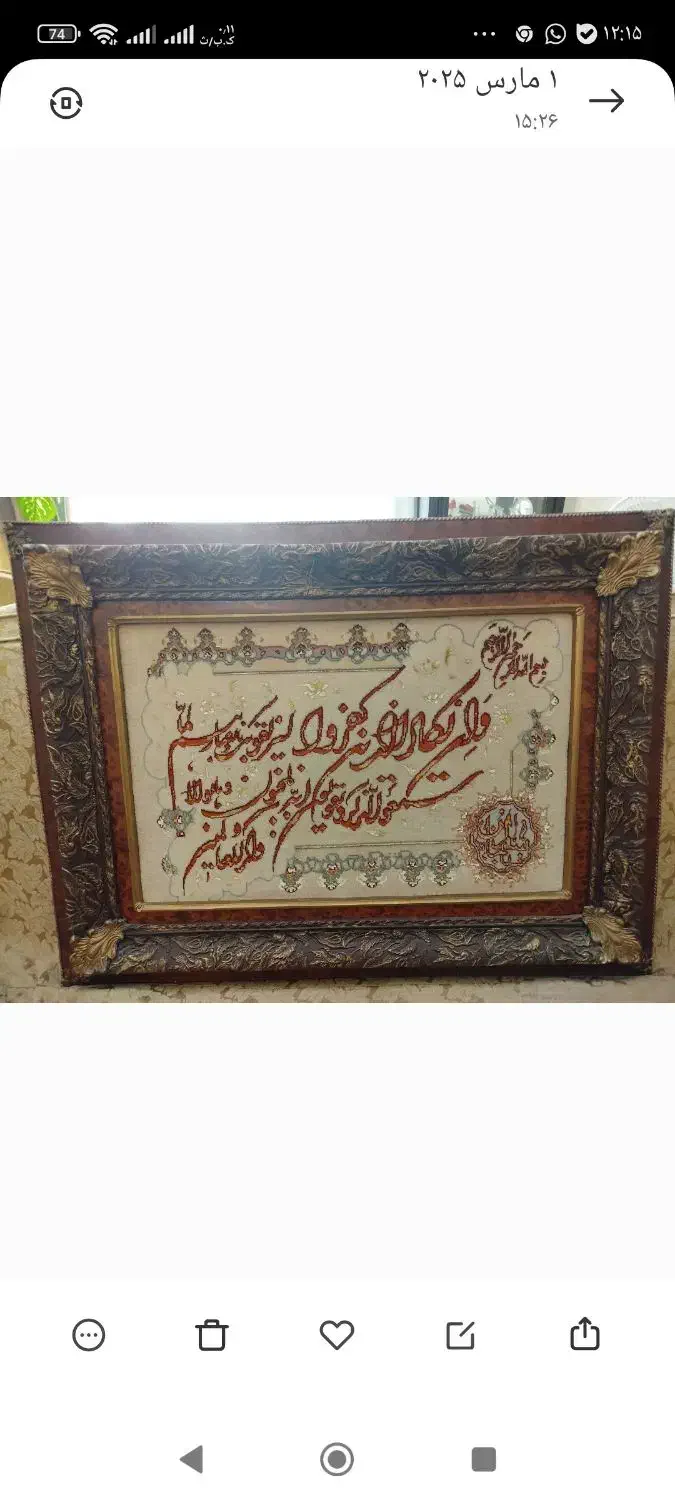 ۱۲:۱۵
۰/۱۱
ک.ب/ث
74
۱ مارس ۲۰۲۵
۱۵:۲۶
بسم الله الرحمن الرحیم
وَاِن یکاد الذین کفروا لیزلقونک بابصارهم لمّا
سمعوا الذکر و یقولون انه لمجنون و ما هو الا
ذکر للعالمین